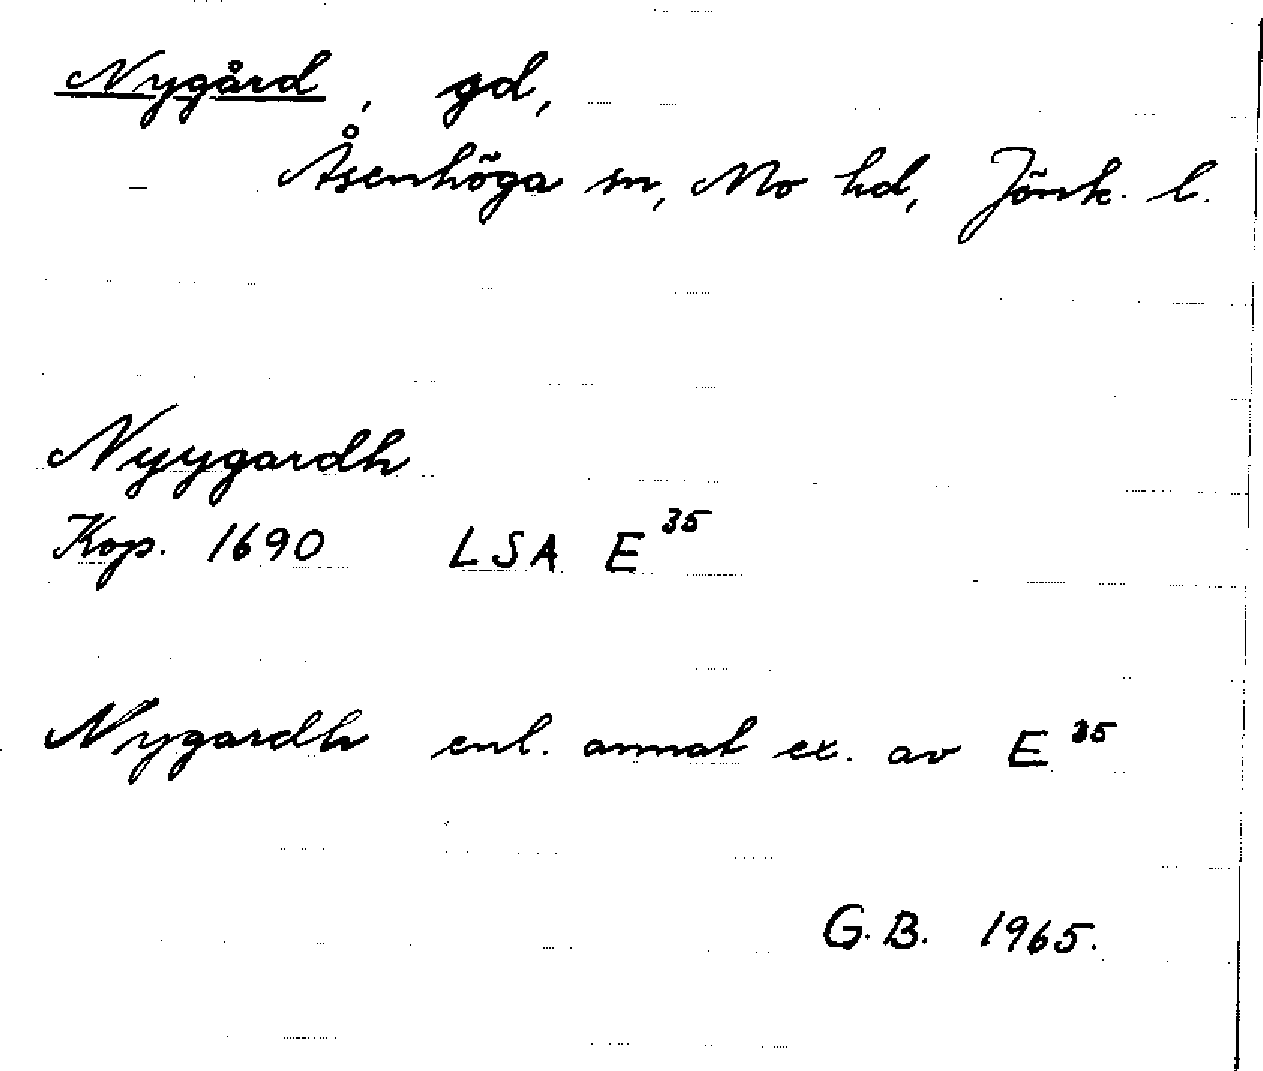 Nygård, gd,
Åsenhöga sn, Mo hd, Jönk. l.
Nyygardh
Kop. 1690 LSA E³⁵
Nygardh enl. annat ex. av E³⁵
G.B. 1965.